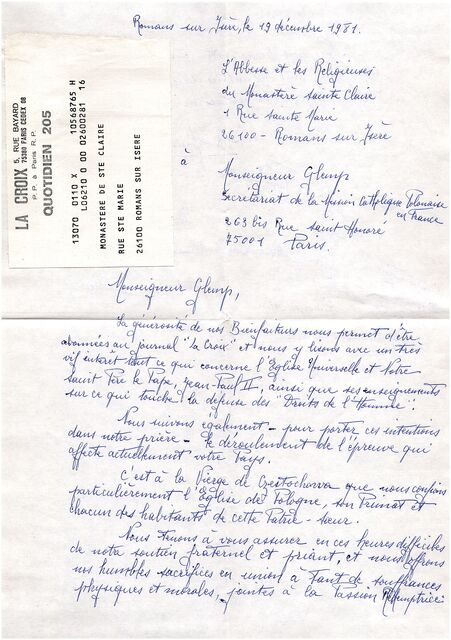 Romans sur Isère, le 19 décembre 1981.
LA CROIX 5, RUE BAYARD,
75380 PARIS CEDEX 08
P.P. à Paris R.P.
QUOTIDIEN 205
13070 0110 X 10568765 H
L06210 0 00 02600281 16
MONASTERE DE STE CLAIRE
RUE STE MARIE
26100 ROMANS SUR ISERE
L'Abbesse et les Religieuses
du Monastère sainte Claire
1 Rue sainte Marie
26100 - Romans sur Isère
à
Monseigneur Glemp
Secrétariat de la Mission Catholique Polonaise
en France
263 bis Rue saint Honoré
75001 Paris.
Monseigneur Glemp,
La générosité de nos Bienfaiteurs nous permet d'être
abonnées au journal "La Croix" et nous y lisons avec un très
vif intérêt tout ce qui concerne l'Eglise Universelle et Notre
saint Père le Pape, Jean-Paul II, ainsi que ses enseignements
sur ce qui touche la défense des "Droits de l'Homme".
Nous suivons également - pour porter ces intentions
dans notre prière - le déroulement de l'épreuve qui
affecte actuellement votre Pays.
C'est à la Vierge de Czestochowa que nous confions
particulièrement l'Eglise de Pologne, son Primat et
chacun des habitants de cette Patrie-soeur.
Nous tenons à vous assurer en ces heures difficiles
de notre soutien fraternel et priant, et nous offrons
nos humbles sacrifices en union à tant de souffrances
physiques et morales, jointes à la Passion Rédemptrice